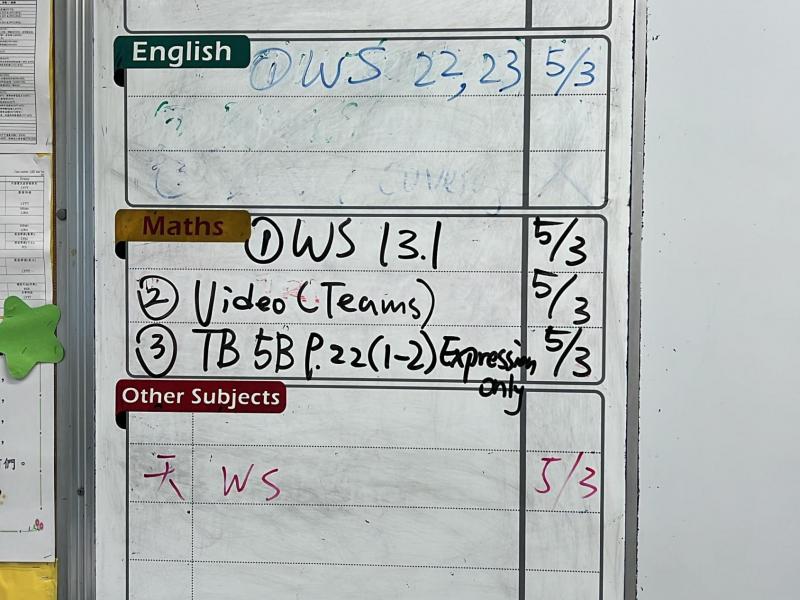 English
① WS 22, 23 5/3
Maths
① WS 13.1 5/3
② Video (Teams) 5/3
③ TB 5B P.22 (1-2) Expression only 5/3
Other Subjects
天 WS 5/3
們。